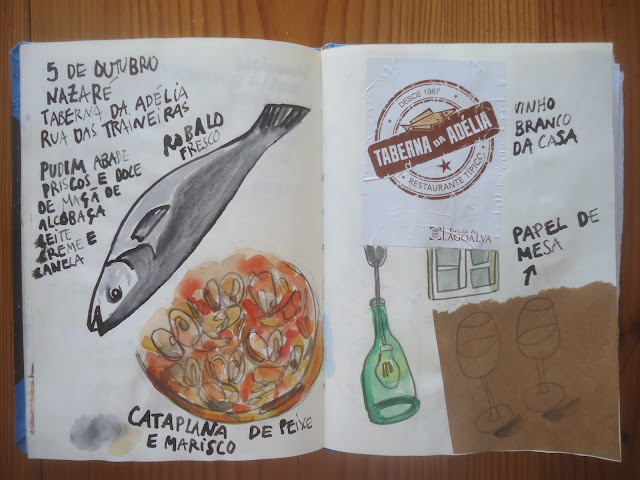 5 DE OUTUBRO
NAZARÉ
TABERNA DA ADÉLIA
RUA DAS TRAINEIRAS
ROBALO
FRESCO
PUDIM ABADE
PRISCOS E DOCE
DE MAÇÃ DE
ALCOBAÇA
LEITE
CREME E
CANELA
CATAPLANA DE PEIXE
E MARISCO
DESDE 1987
TABERNA DA ADÉLIA
RESTAURANTE TÍPICO
Quinta da
LAGOALVA
VINHO
BRANCO
DA CASA
PAPEL DE
MESA